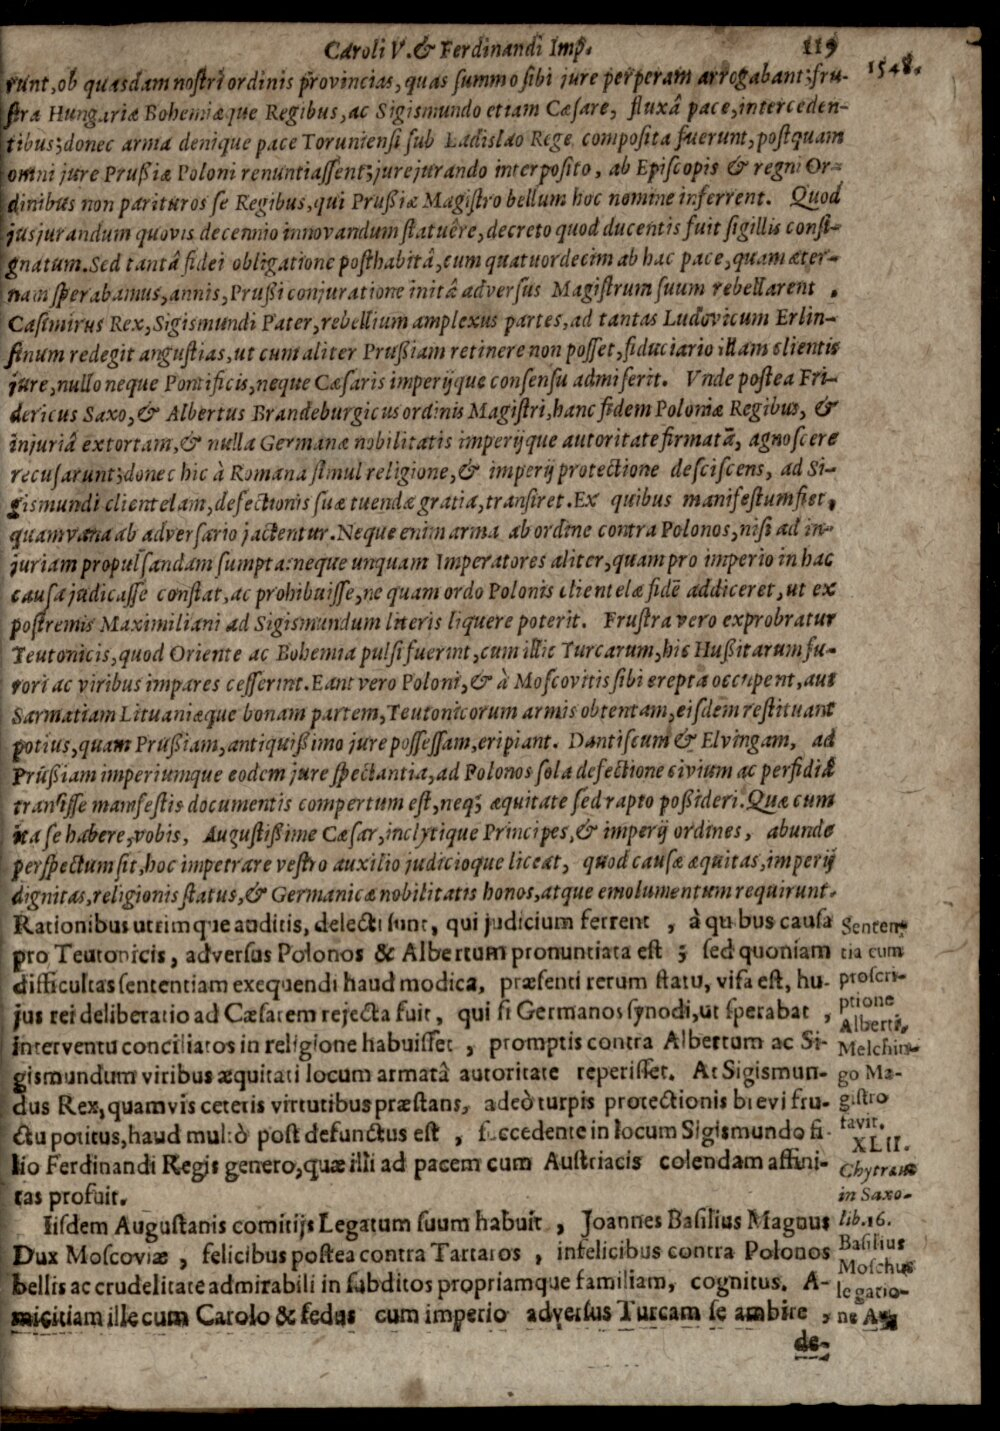 Caroli V. & Ferdinandi Imp. 119
1548.
runt, ob quasdam nostri ordinis provincias, quas summo sibi jure perperam arrogabant; fru-
stra Hungariæ Bohemiæque Regibus, ac Sigismundo etiam Cæsare, fluxâ pace, interceden-
tibus; donec arma denique pace Toruniensi sub Ladislao Rege composita fuerunt, postquam
omni jure Prußiæ Poloni renuntiassent; jurejurando interposito, ab Episcopis & regni Or-
dinibus non parituros se Regibus, qui Prußiæ Magistro bellum hoc nomine inferrent. Quod
jusjurandum quovis decennio innovandum statuêre, decreto quod ducentis fuit sigillis consi-
gnatum. Sed tantâ fidei obligatione posthabitâ, cum quatuordecim ab hac pace, quam æter-
nam sperabamus, annis, Prußi conjuratione initâ adversus Magistrum suum rebellarent.
Casimirus Rex, Sigismundi Pater, rebellium amplexus partes, ad tantas Ludovicum Erlin-
sinum redegit angustias, ut cum aliter Prußiam retinere non posset, fiduciario illam clientis
jure, nullo neque Pontificis, neque Cæsaris imperijque consensu admiserit. Vnde postea Fri-
dericus Saxo, & Albertus Brandeburgicus ordinis Magistri, hanc fidem Poloniæ Regibus, &
injuriâ extortam, & nulla Germanæ nobilitatis imperijque autoritate firmatã, agnoscere
recusarunt; donec hic à Romana simul religione, & imperij protectione desciscens, ad Si-
gismundi clientelam, defectionis suæ tuendæ gratia, transiret. Ex quibus manifestum fiet,
quam vana ab adversario jactentur. Neque enim arma ab ordine contra Polonos, nisi ad in-
juriam propulsandam sumpta: neque unquam Imperatores aliter, quam pro imperio in hac
causa judicasse constat, ac prohibuisse, ne quam ordo Polonis clientelæ fidẽ addiceret, ut ex
postremis Maximiliani ad Sigismundum literis liquere poterit. Frustra vero exprobratur
Teutonicis, quod Oriente ac Bohemia pulsi fuerint, cum illic Turcarum, hic Hußitarum fu-
rori ac viribus impares cesserint. Eant vero Poloni, & à Moscovitis sibi erepta occupent, aut
Sarmatiam Lituaniæque bonam partem, Teutonicorum armis obtentam, eisdem restituant
potius, quam Prußiam, antiquißimo jure possessam, eripiant. Dantiscum & Elvingam, ad
Prußiam imperiumque eodem jure spectantia, ad Polonos sola defectione civium ac perfidiâ
transisse manifestis documentis compertum est, neq; æquitate sed rapto poßideri. Quæ cum
ita se habere, vobis, Augustißime Cæsar, inclytique Principes, & imperij ordines, abunde
perspectum sit, hoc impetrare vestro auxilio judicioque liceat, quod causæ æquitas, imperij
dignitas, religionis status, & Germanicæ nobilitatis honos, atque emolumentum requirunt.
Rationibus utrimque auditis, delecti sunt, qui judicium ferrent, à quibus causa
pro Teutonicis, adversus Polonos & Albertum pronuntiata est; sed quoniam
difficultas sententiam exequendi haud modica, præsenti rerum statu, visa est, hu-
jus rei deliberatio ad Cæsarem rejecta fuit, qui si Germanos synodi, ut sperabat,
interventu conciliatos in religione habuisset, promptis contra Albertum ac Si-
gismundum viribus æquitati locum armatâ autoritate reperisset. At Sigismun-
dus Rex, quamvis ceteris virtutibus præstans, adeò turpis protectionis brevi fru-
ctu potitus, haud multò post defunctus est, succedente in locum Sigismundo fi-
lio Ferdinandi Regis genero, quæ illi ad pacem cum Austriacis colendam affini-
tas profuit.
Iisdem Augustanis comitijs Legatum suum habuit, Joannes Basilius Magnus
Dux Moscoviæ, felicibus postea contra Tartaros, infelicibus contra Polonos
bellis ac crudelitate admirabili in subditos propriamque familiam, cognitus. A-
micitiam ille cum Carolo & fedus cum imperio adversus Turcam se ambire,
de-
Senten-
tia cum
proscri-
ptione
Alberti,
Melchin-
go Ma-
gistro
tavit.
XLII.
Chytræus
in Saxo-
lib. 16.
Basilius
Moschus
legatio-
ne